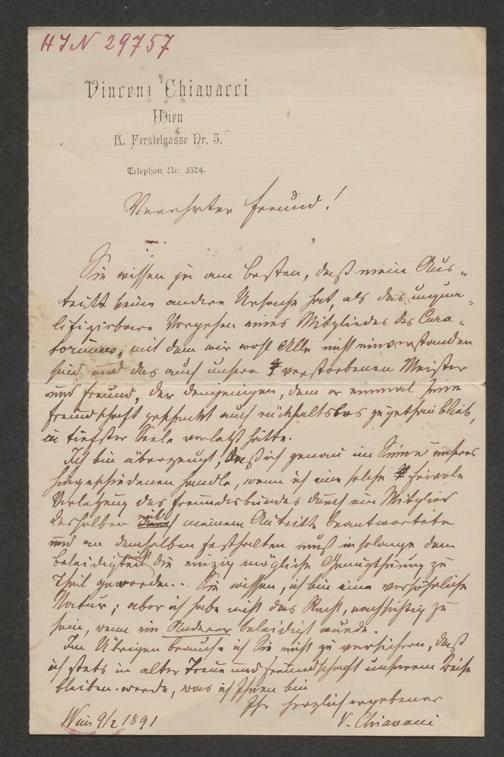 HIN 29757
Vincenz Chiavacci
Wien
IX. Ferstelgasse Nr. 5.
Telephon Nr. 3374.
Verehrter Freund!
Sie wissen ja am besten, daß mein Aus-
tritt keine andere Ursache hat, als das unqua-
lifizirbare Vorgehen eines Mitgliedes des Cura-
toriums, mit dem wir wohl Alle nicht einverstanden
sind und das auch unsern verstorbenen Meister
und Freund, der demjenigen, dem er einmal seine
Freundschaft geschenkt auch rückhaltslos zugethan blieb,
in tiefster Seele verletzt hätte.
Ich bin überzeugt, daß ich genau im Sinne unseres
hingeschiedenen handle, wenn ich eine solche frivole
Verletzung des Freundesbundes durch ein Mitglied
desselben mit meinem Austritt beantwortete
und an demselben festhalten muß insolange dem
Beleidigten nicht die einzig mögliche Genugthuung zu
Theil geworden. Sie wissen, ich bin eine versöhnliche
Natur; aber ich habe nicht das Recht, nachsichtig zu
sein, wenn ein Anderer beleidigt wurde.
Im Übrigen brauche ich Sie nicht zu versichern, daß
ich stets in alter Treue und Freundschaft unserem Kreise
bleiben werde, was ich Ihnen bin
Ihr herzlich ergebener
Wien 9/2 1891 V. Chiavacci